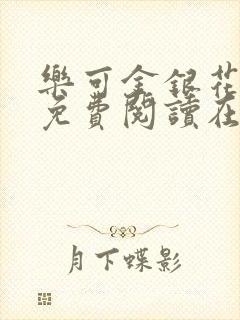 樂可金銀花
免費閱讀在
月下蝶影